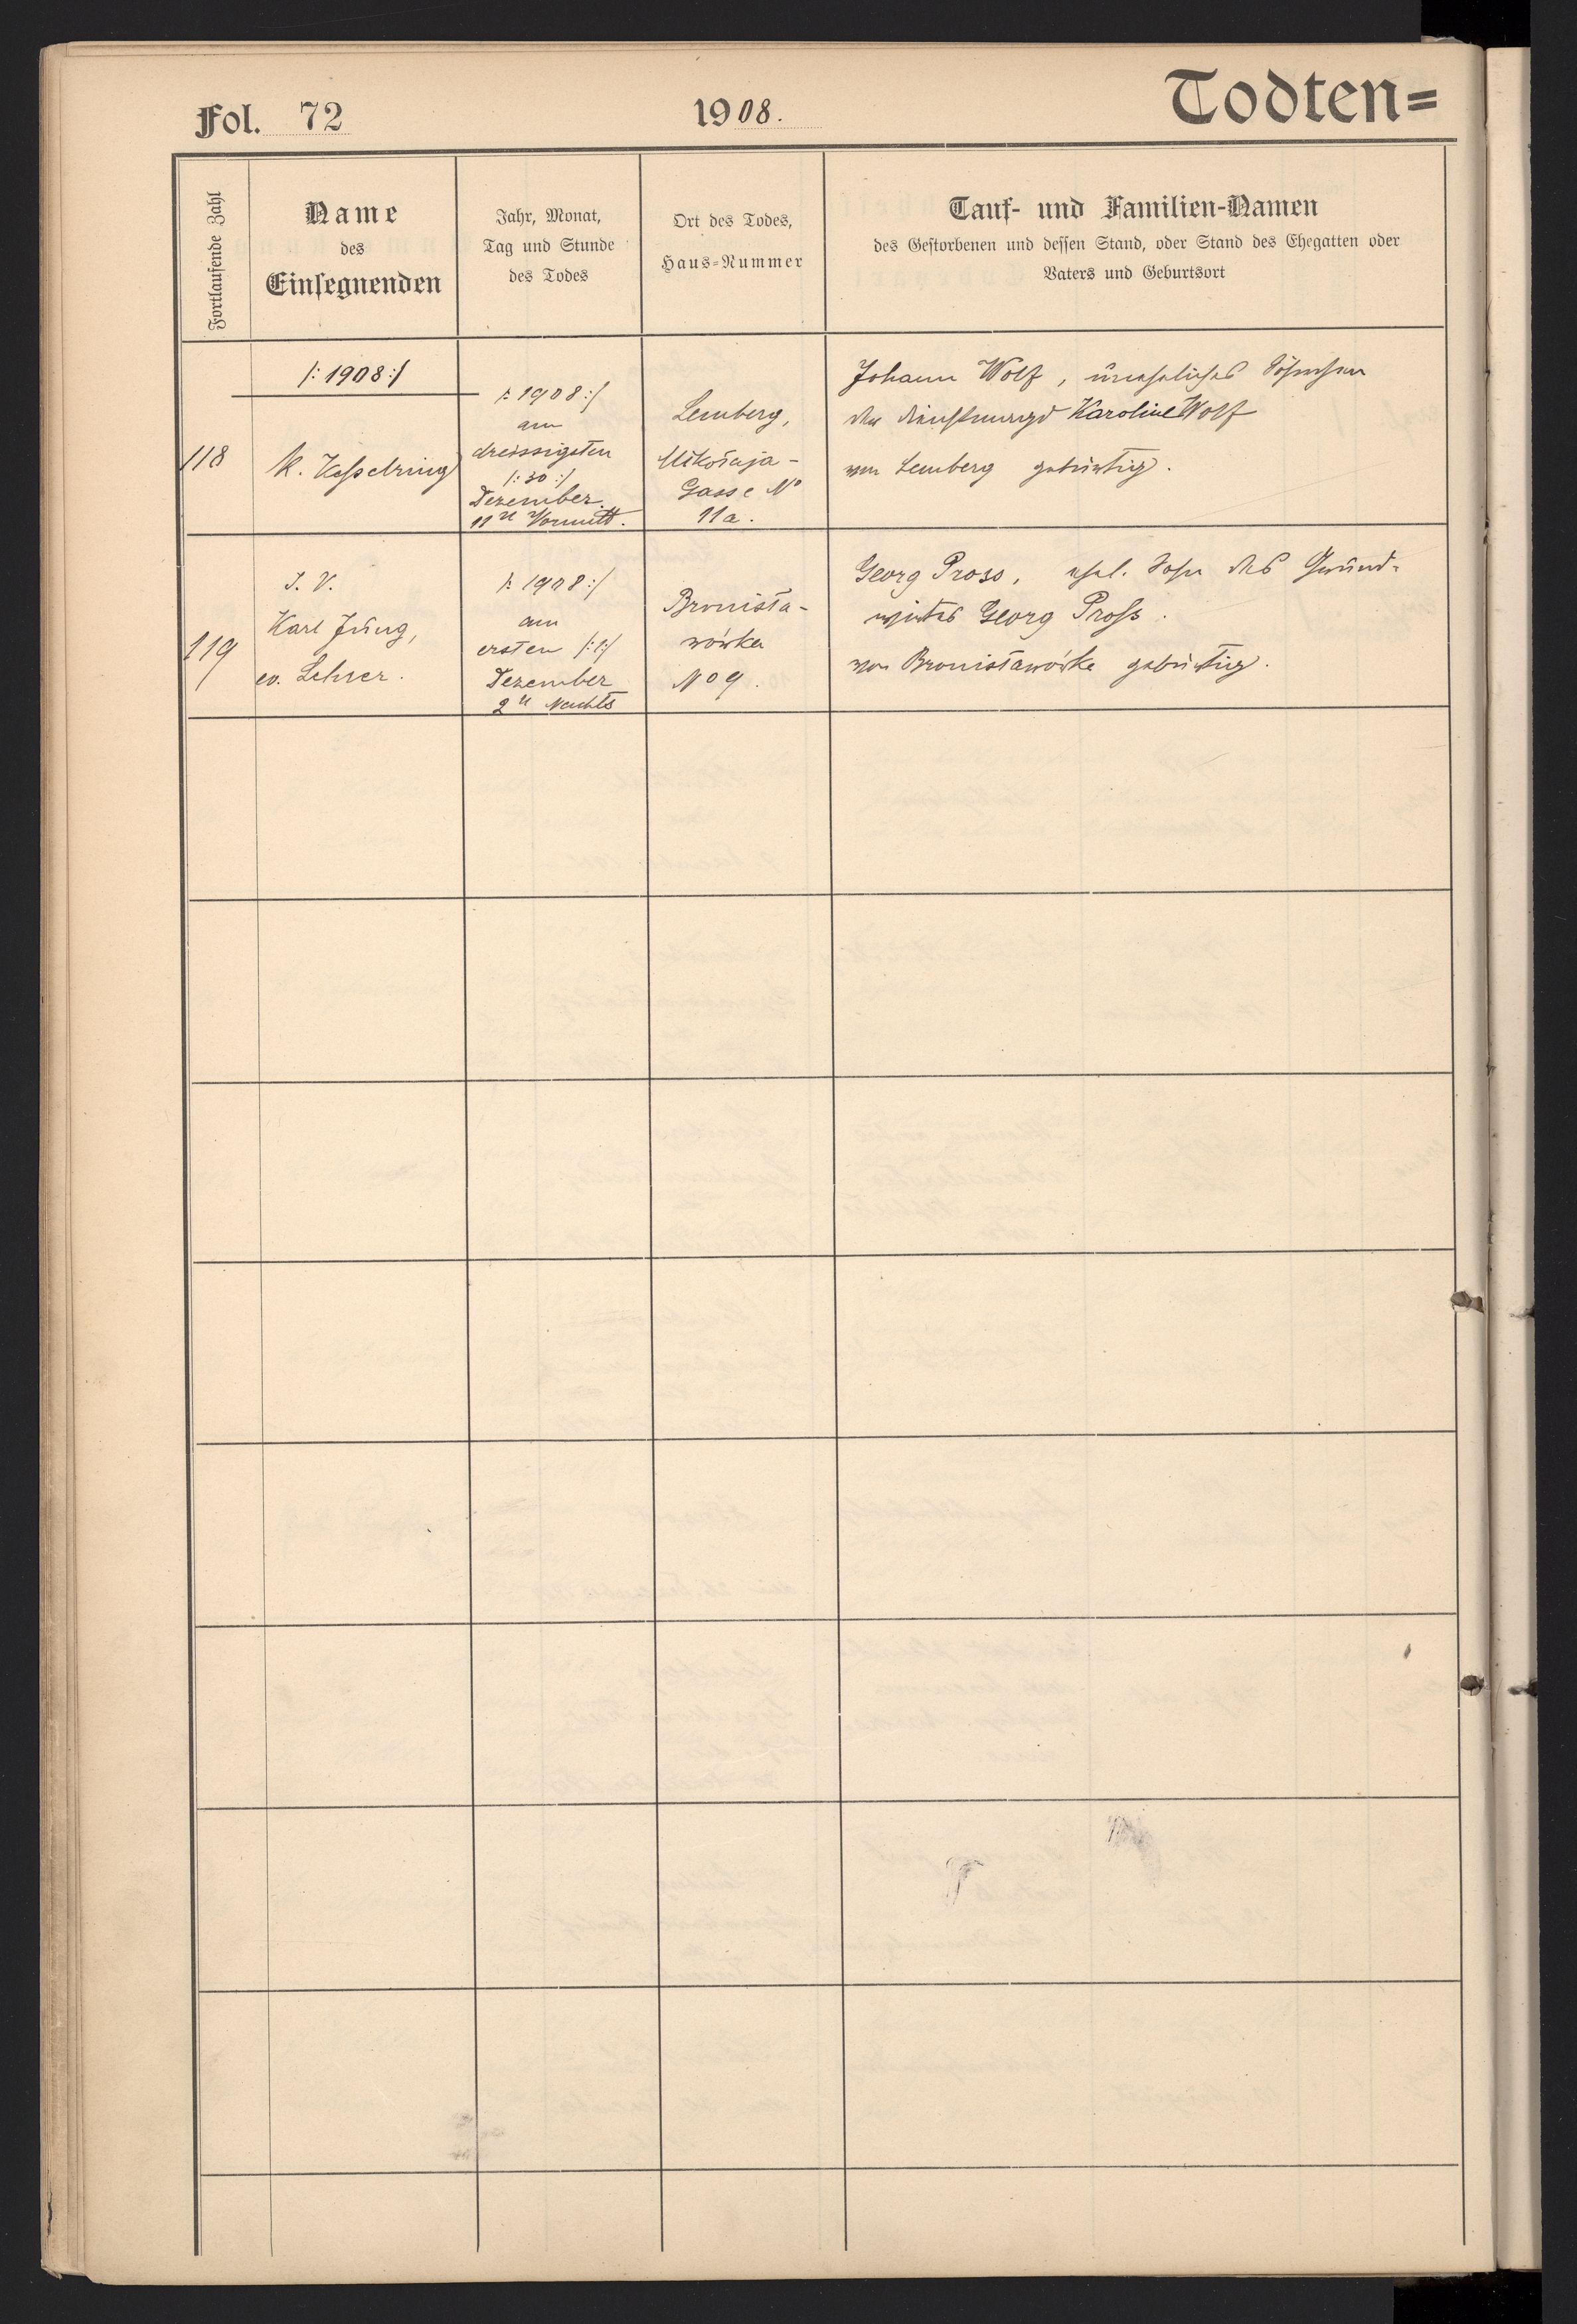 Fol. 72
1908.
Todten=
Fortlaufende Zahl
Name
des
Einsegnenden
Jahr, Monat,
Tag und Stunde
des Todes
Ort des Todes,
Haus=Nummer
Tauf- und Familien-Namen
des Gestorbenen und dessen Stand, oder Stand des Ehegatten oder
Vaters und Geburtsort
118
/:1908:/
K. Kesselring
/:1908:/
am
dreissigsten
/:30:/
Dezember
11 U Vormitt.
Lemberg,
Mikołaja-
Gasse No
11a.
Johann Wolf, uneheliches Söhnchen
der Dienstmagd Karoline Wolf
von Lemberg gebürtig.
119
I. V.
Karl Jung,
ev. Lehrer.
/:1908:/
am
ersten /:1:/
Dezember
2 U Nachts
Bronisła-
wówka
No 9.
Georg Pross, ehel. Sohn des Grund-
wirtes Georg Pross.
von Bronisławówka gebürtig.